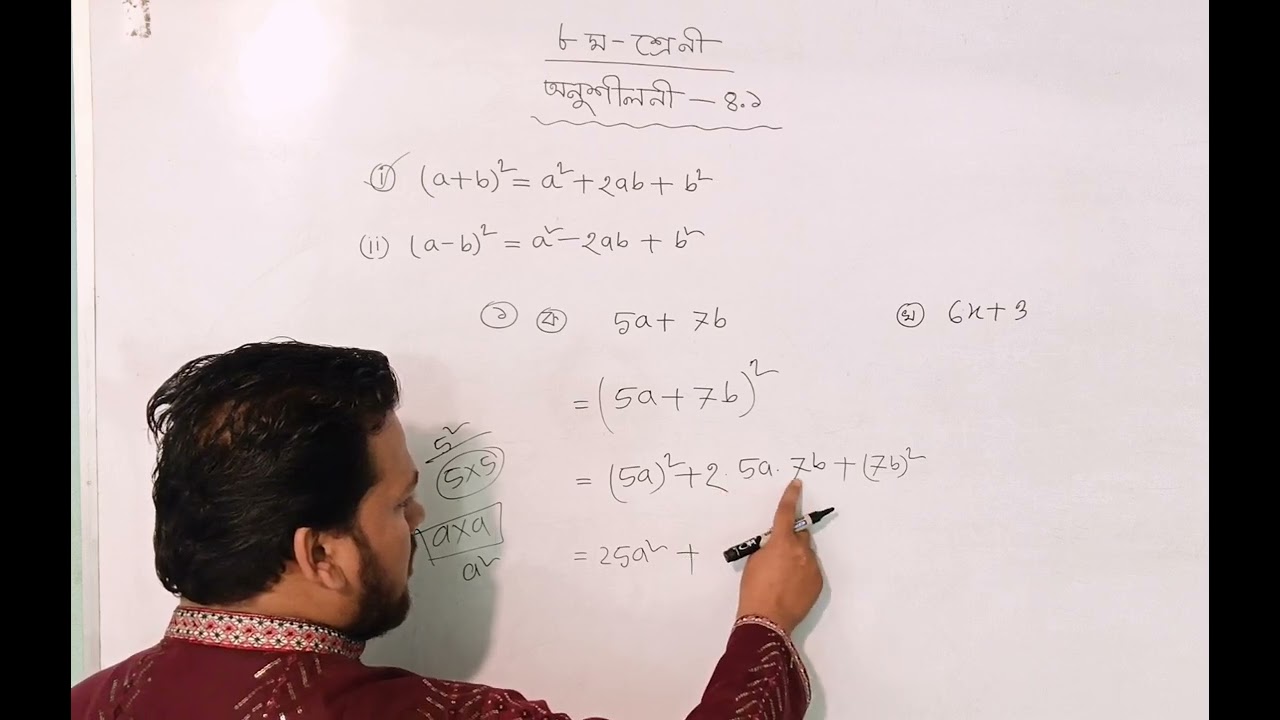 ৮ম-শ্রেনী
অনুশীলনী - ৪.১
(i) (a+b)² = a² + 2ab + b²
(ii) (a-b)² = a² - 2ab + b²
১ ক 5a + 7b
= (5a + 7b)²
= (5a)² + 2. 5a. 7b + (7b)²
= 25a² +
খ 6x + 3
5²
5×5
a×a
a²